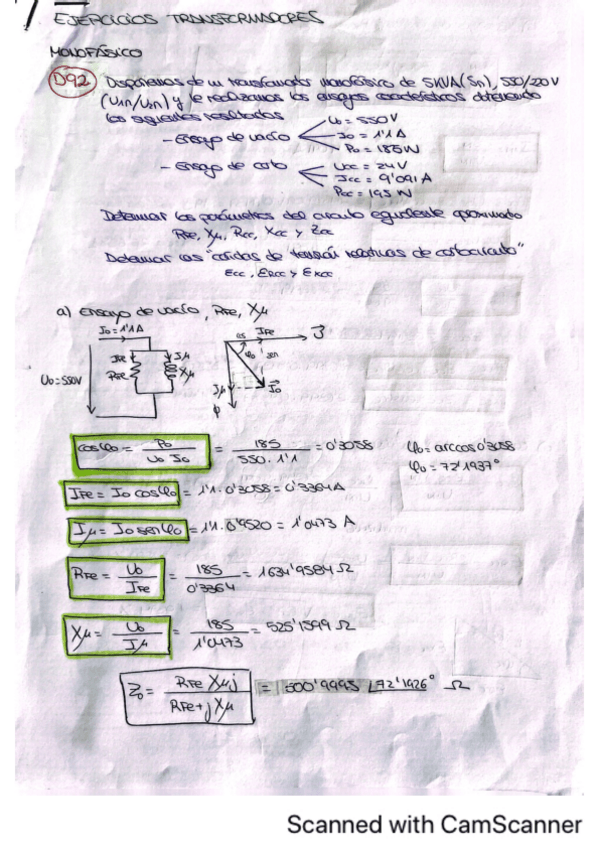 EJERCICIOS TRANSFORMADORES
MONOFÁSICO
D92 Disponemos de un transformador monofásico de 5KVA (Sn), 550/220V
(U1n/U2n) y le realizamos los ensayos característicos obteniendo
los siguientes resultados
- ensayo de vacío
U0 = 550V
I0 = 1'1 A
P0 = 185W
- ensayo de corto
Ucc = 24V
Icc = 9'091 A
Pcc = 195 W
Determinar los parámetros del circuito equivalente aproximado
RFe, Xμ, Rcc, Xcc y Zcc
Determinar las "caídas de tensión relativas de cortocircuito"
Ecc, ERcc y EXcc
a) ensayo de vacío, RFe, Xμ
I0 = 1'1 A
IFe
Iμ
RFe
Xμ
U0 = 550V
cos
IFe
φ0
sen
Iμ
I0
φ
cosφ0 = P0 / U0 I0 = 185 / 550 · 1'1 = 0'3058
φ0 = arccos 0'3058
φ0 = 72'1937°
IFe = I0 cosφ0 = 1'1 · 0'3058 = 0'3364 A
Iμ = I0 senφ0 = 1'1 · 0'9520 = 1'0473 A
RFe = U0 / IFe = 185 / 0'3364 = 1634'9584 Ω
Xμ = U0 / Iμ = 185 / 1'0473 = 525'1599 Ω
Z0 = RFe Xμj / RFe + jXμ = 500'9995 ∠72'1926° Ω
Scanned with CamScanner